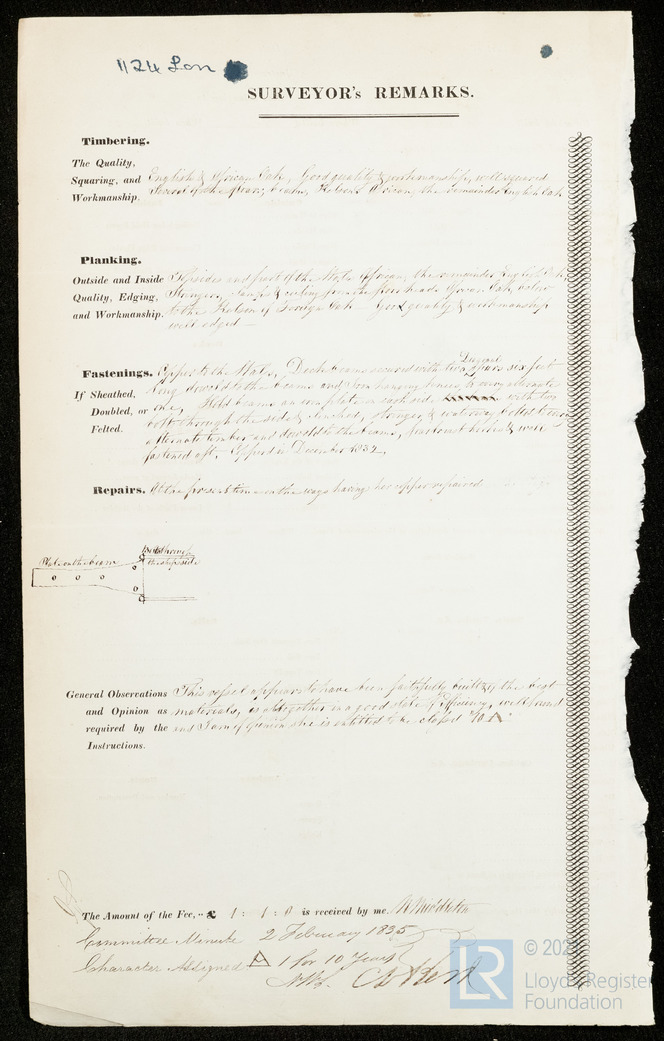 1124 Lon
SURVEYOR's REMARKS.
Timbering.
The Quality,
Squaring, and
Workmanship.
English & African Oak, Good quality & workmanship, well squared
Several of the floors, beams, Kelson African, the remainder English Oak
Planking.
Outside and Inside
Quality, Edging,
and Workmanship.
Topsides and part of the Wales African, the remainder English Oak,
Oak, below
to the Kelson of Foreign Oak Good quality & workmanship
well edged
Fastenings.
If Sheathed,
Doubled, or
Felted.
Copper to the Wales, Deck beams secured with two Diagonal six feet
long dowelled to the beams and Iron hanging knees to every alternate
one, Hold beams an iron plate on each side with two
bolts through the side & clinched, & waterway bolted
alternate timber and dowelled to the beams, & well
fastened aft, Copperd in December 1832
Repairs. At the present time on the ways having her copper repaired
Plate on the beam
Bolts through
the ship side
General Observations
and Opinion as
required by the
Instructions.
This vessel appears to have been faithfully built of the best
materials, is altogether in a good state of efficiency, well found
and I am of Opinion she is entitled to be classed 10 A
The Amount of the Fee, .. £ 1 : 1 : 0 is received by me
Middleton
Committee Minute 2 February 1835
Character Assigned A 1 for 10 Years
LR
© 202
Lloyd's Register
Foundation